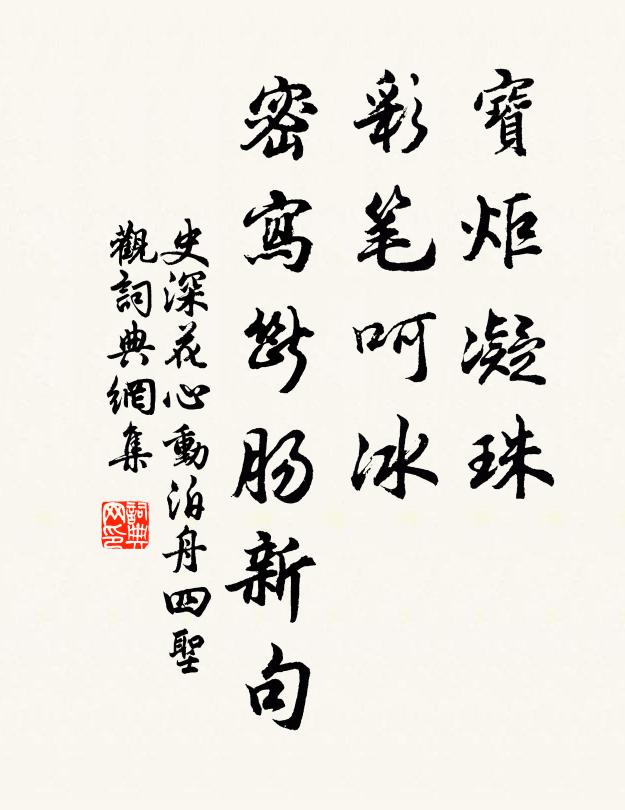 寶炬凝珠
彩笔呵冰
密寫斷肠新句
史深花心動泊舟四聖
觀詞典網集
詞典网印